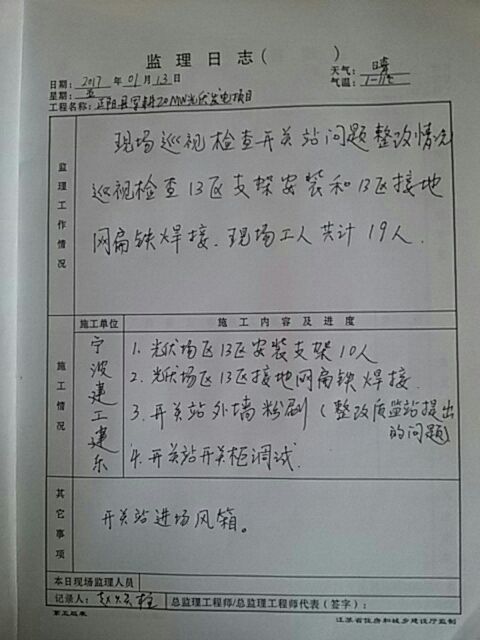 监理日志（ ）
日期：2017 年 01 月 13 日 天气：晴
星期：五 气温：
工程名称：正阳县军耕20MW光伏发电项目
监理工作情况
现场巡视检查开关站问题整改情况
巡视检查13区支架安装和13区接地
网扁铁焊接、现场工人共计19人.
施工情况
施工单位 施工内容及进度
宁波建工建乐
1. 光伏场区13区安装支架10人
2. 光伏场区13区接地网扁铁焊接.
3. 开关站外墙粉刷（整改质监站提出
的问题）
4. 开关站开关柜调试.
其它事项
开关站进场风箱。
本日现场监理人员
记录人： 总监理工程师/总监理工程师代表（签字）：
第五版表 江苏省住房和城乡建设厅监制